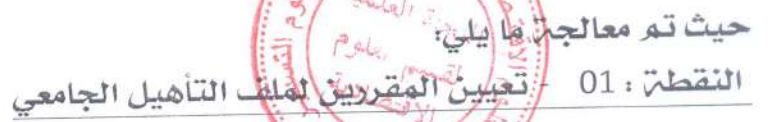 حيث تم معالجة ما يلي:
النقطة : 01 - تعيين المقررين لملف التأهيل الجامعي